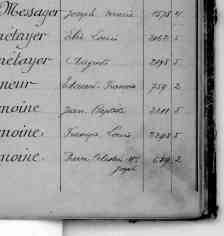 Messager Joseph Marie 1578 4
métayer Louis 2062 5
métayer Auguste 2095 5
neur Edouard François 759 2
moine Jean Baptiste 2111 5
moine François Louis 2298 5
moine Pierre Célestin 2
Joseph